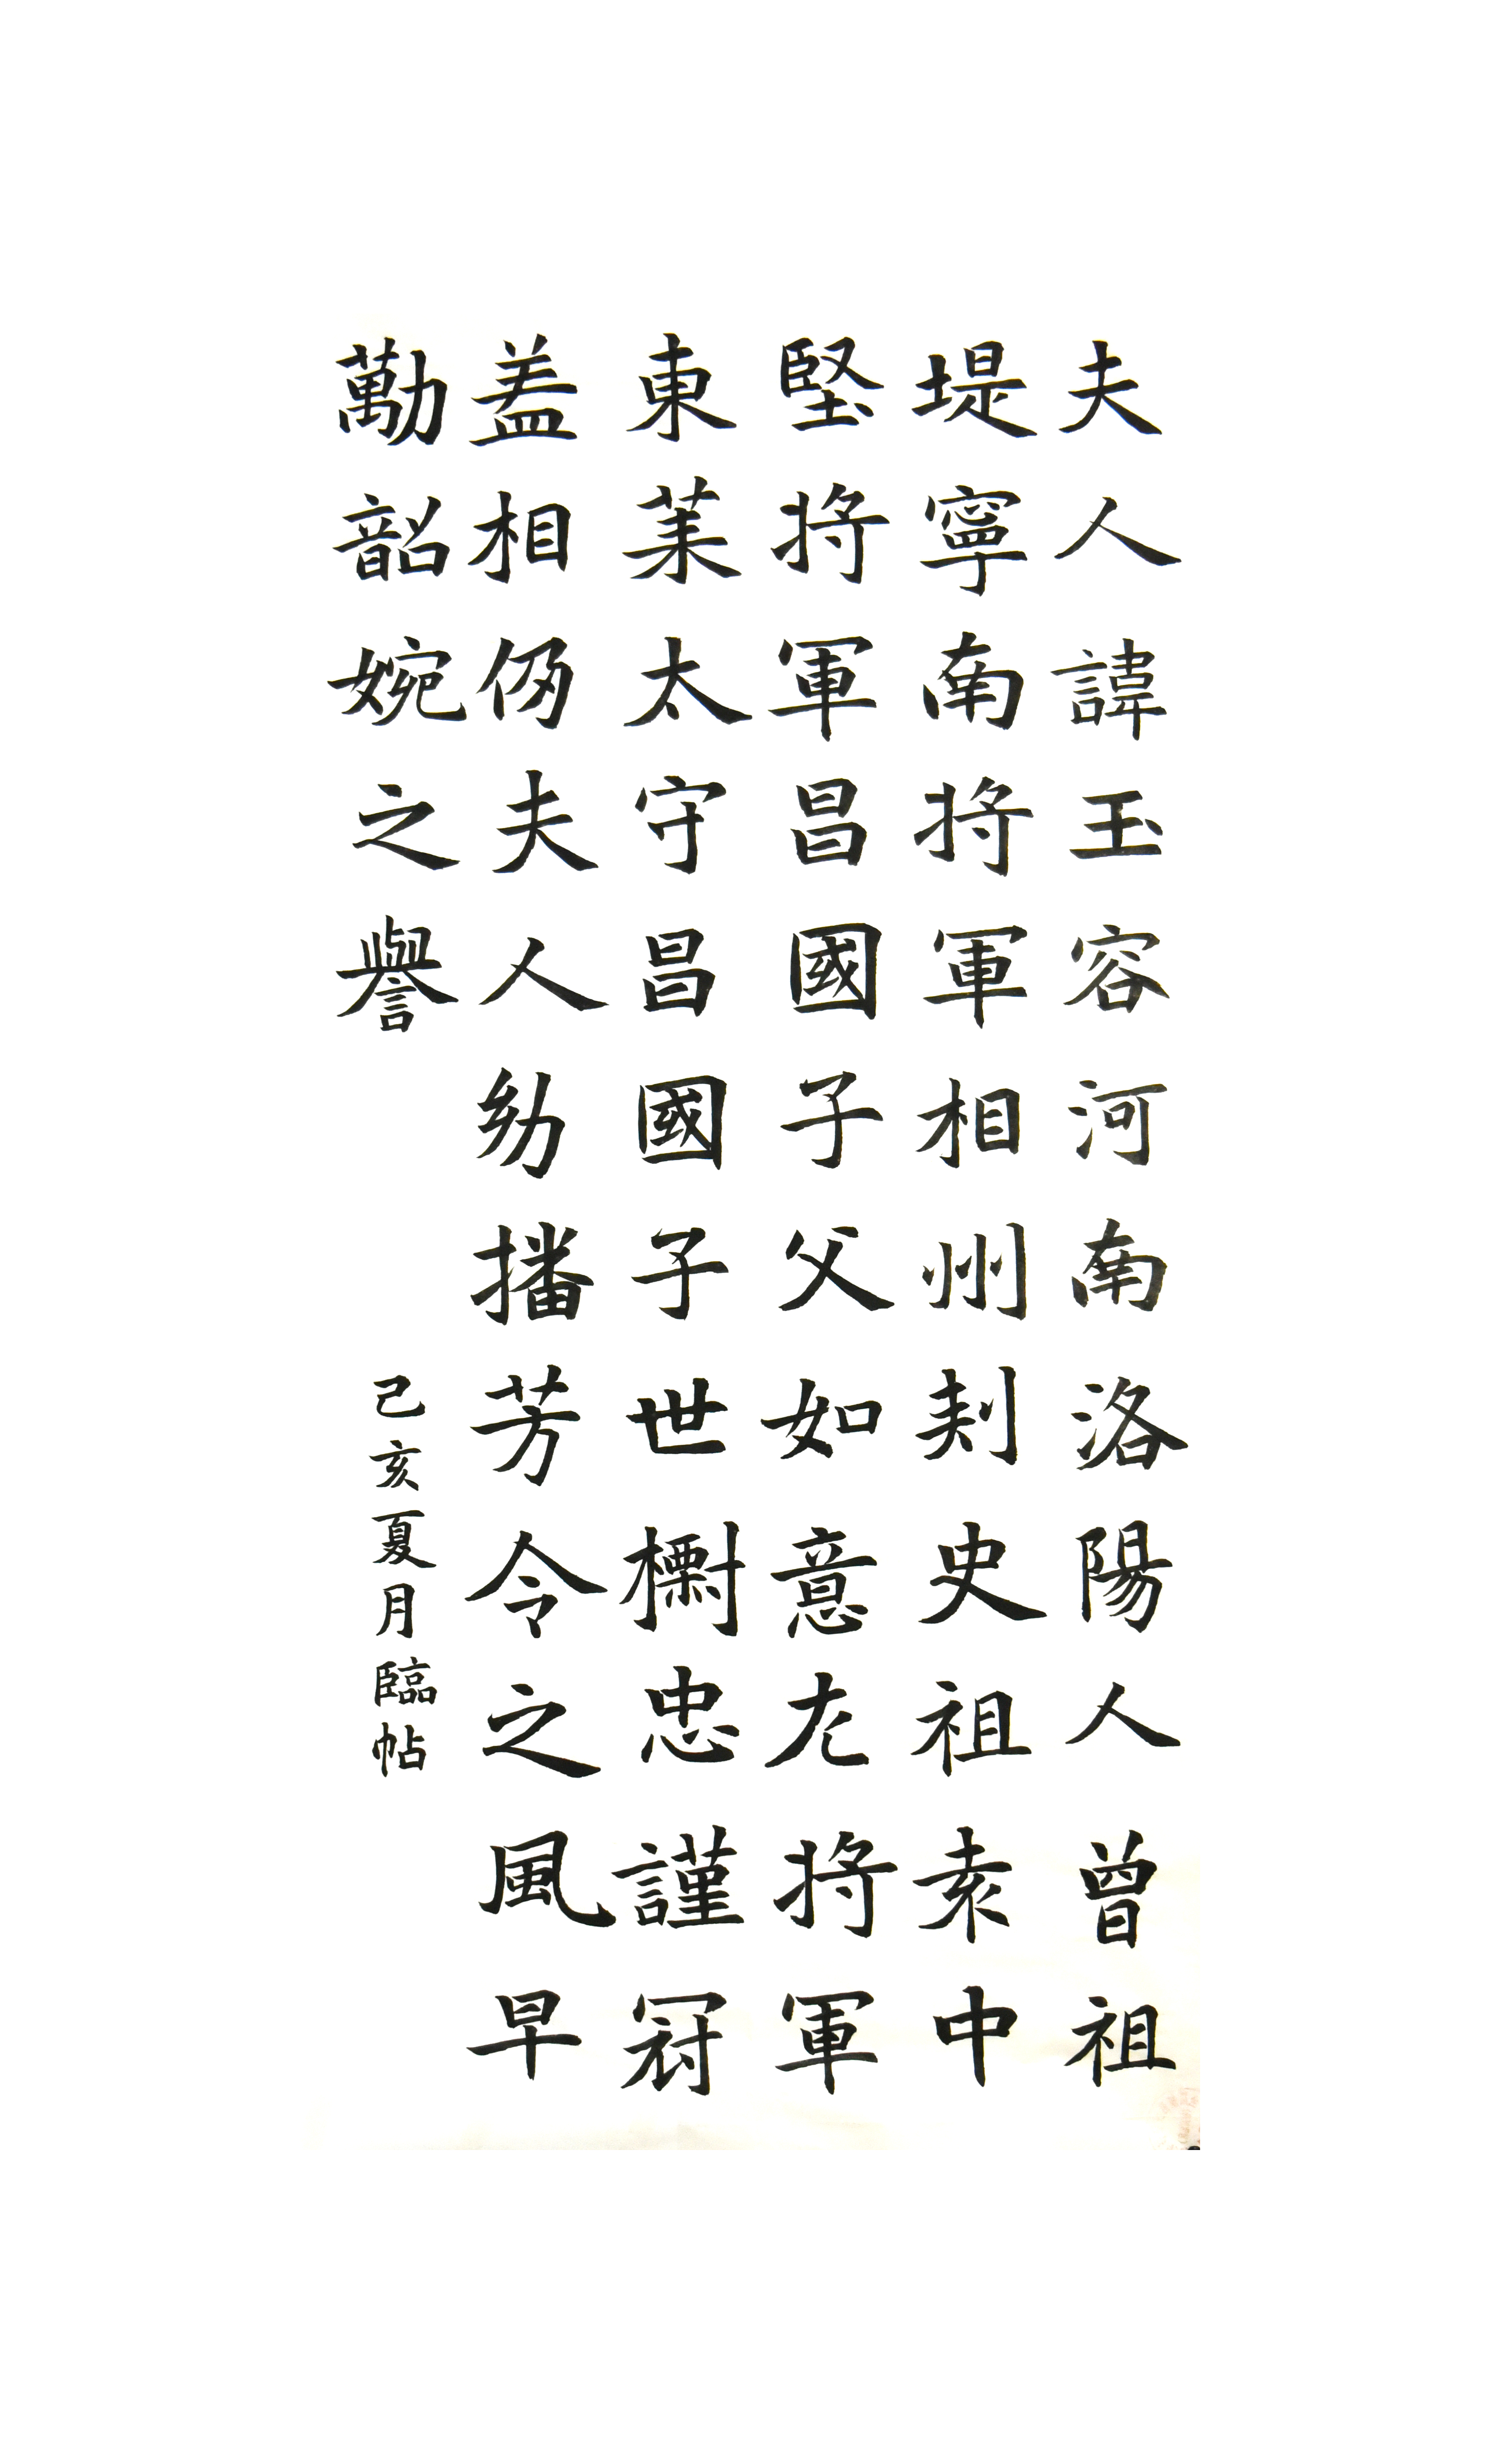 夫人諱玉容河南洛陽人曾祖
堤寧南將軍相州刺史祖素中
堅將軍昌國子父如意左將軍
東萊太守昌國子世樹忠謹冠
蓋相仍夫人幼播芳令之風早
勱韶婉之譽
己亥夏月臨帖